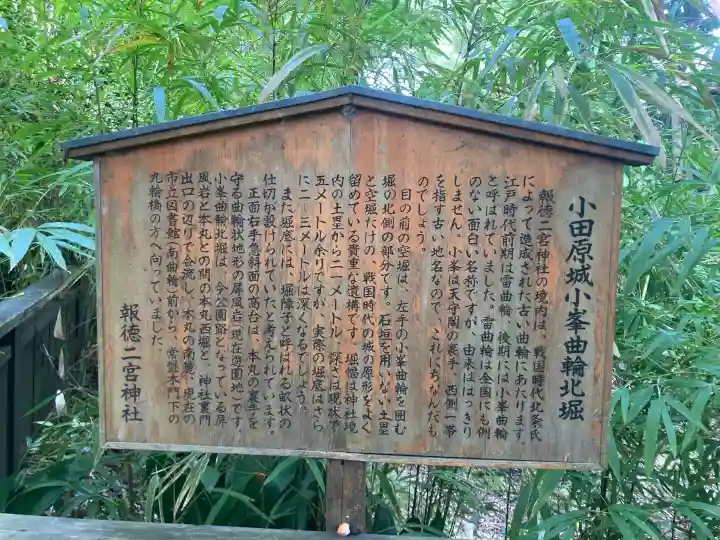 小田原城小峯曲輪北堀
報徳二宮神社の境内は、戦国時代北条氏
によって造成された古い曲輪にあたります。
江戸時代前期は雷曲輪、後期には小峯曲輪
と呼ばれていました。雷曲輪は全国にも例
のない面白い名称ですが、由来ははっきり
しません。小峯は天守閣の裏手、西側一帯
を指す古い地名なので、これにちなんだも
のでしょう。
目の前の空堀は、左手の小峯曲輪を囲む
堀の北側の部分です。石垣を用いない土塁
と空堀だけの、戦国時代の城の原形をよく
留めている貴重な遺構です。堀幅は神社境
内の土塁から二一メートル、深さは現状で
五メートル余りですが、実際の堀底はさら
に二～三メートルは深くなるでしょう。
また堀底には、堀障子と呼ばれる畝状の
仕切が設けられていたと考えられています。
正面右手急斜面の高台は、本丸の裏手を
守る曲輪状地形の屏風岩（現在遊園地）です。
小峯曲輪北堀は、今公園路となっている屏
風岩と本丸との間の本丸西堀と、神社裏門
出口の辺りで合流し、本丸の南麓、現在の
市立図書館（南曲輪）前から、常盤木門下の
丸輪橋の方へ向っていました。
報徳二宮神社